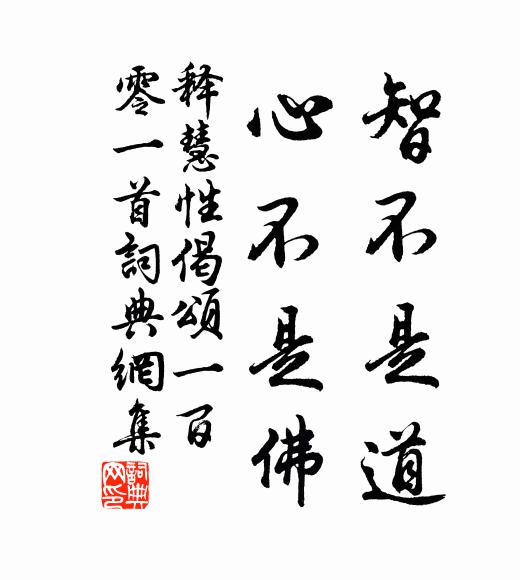 智不是道
心不是佛
释慧性偈頌一百
零一首詞典網集
詞典网印